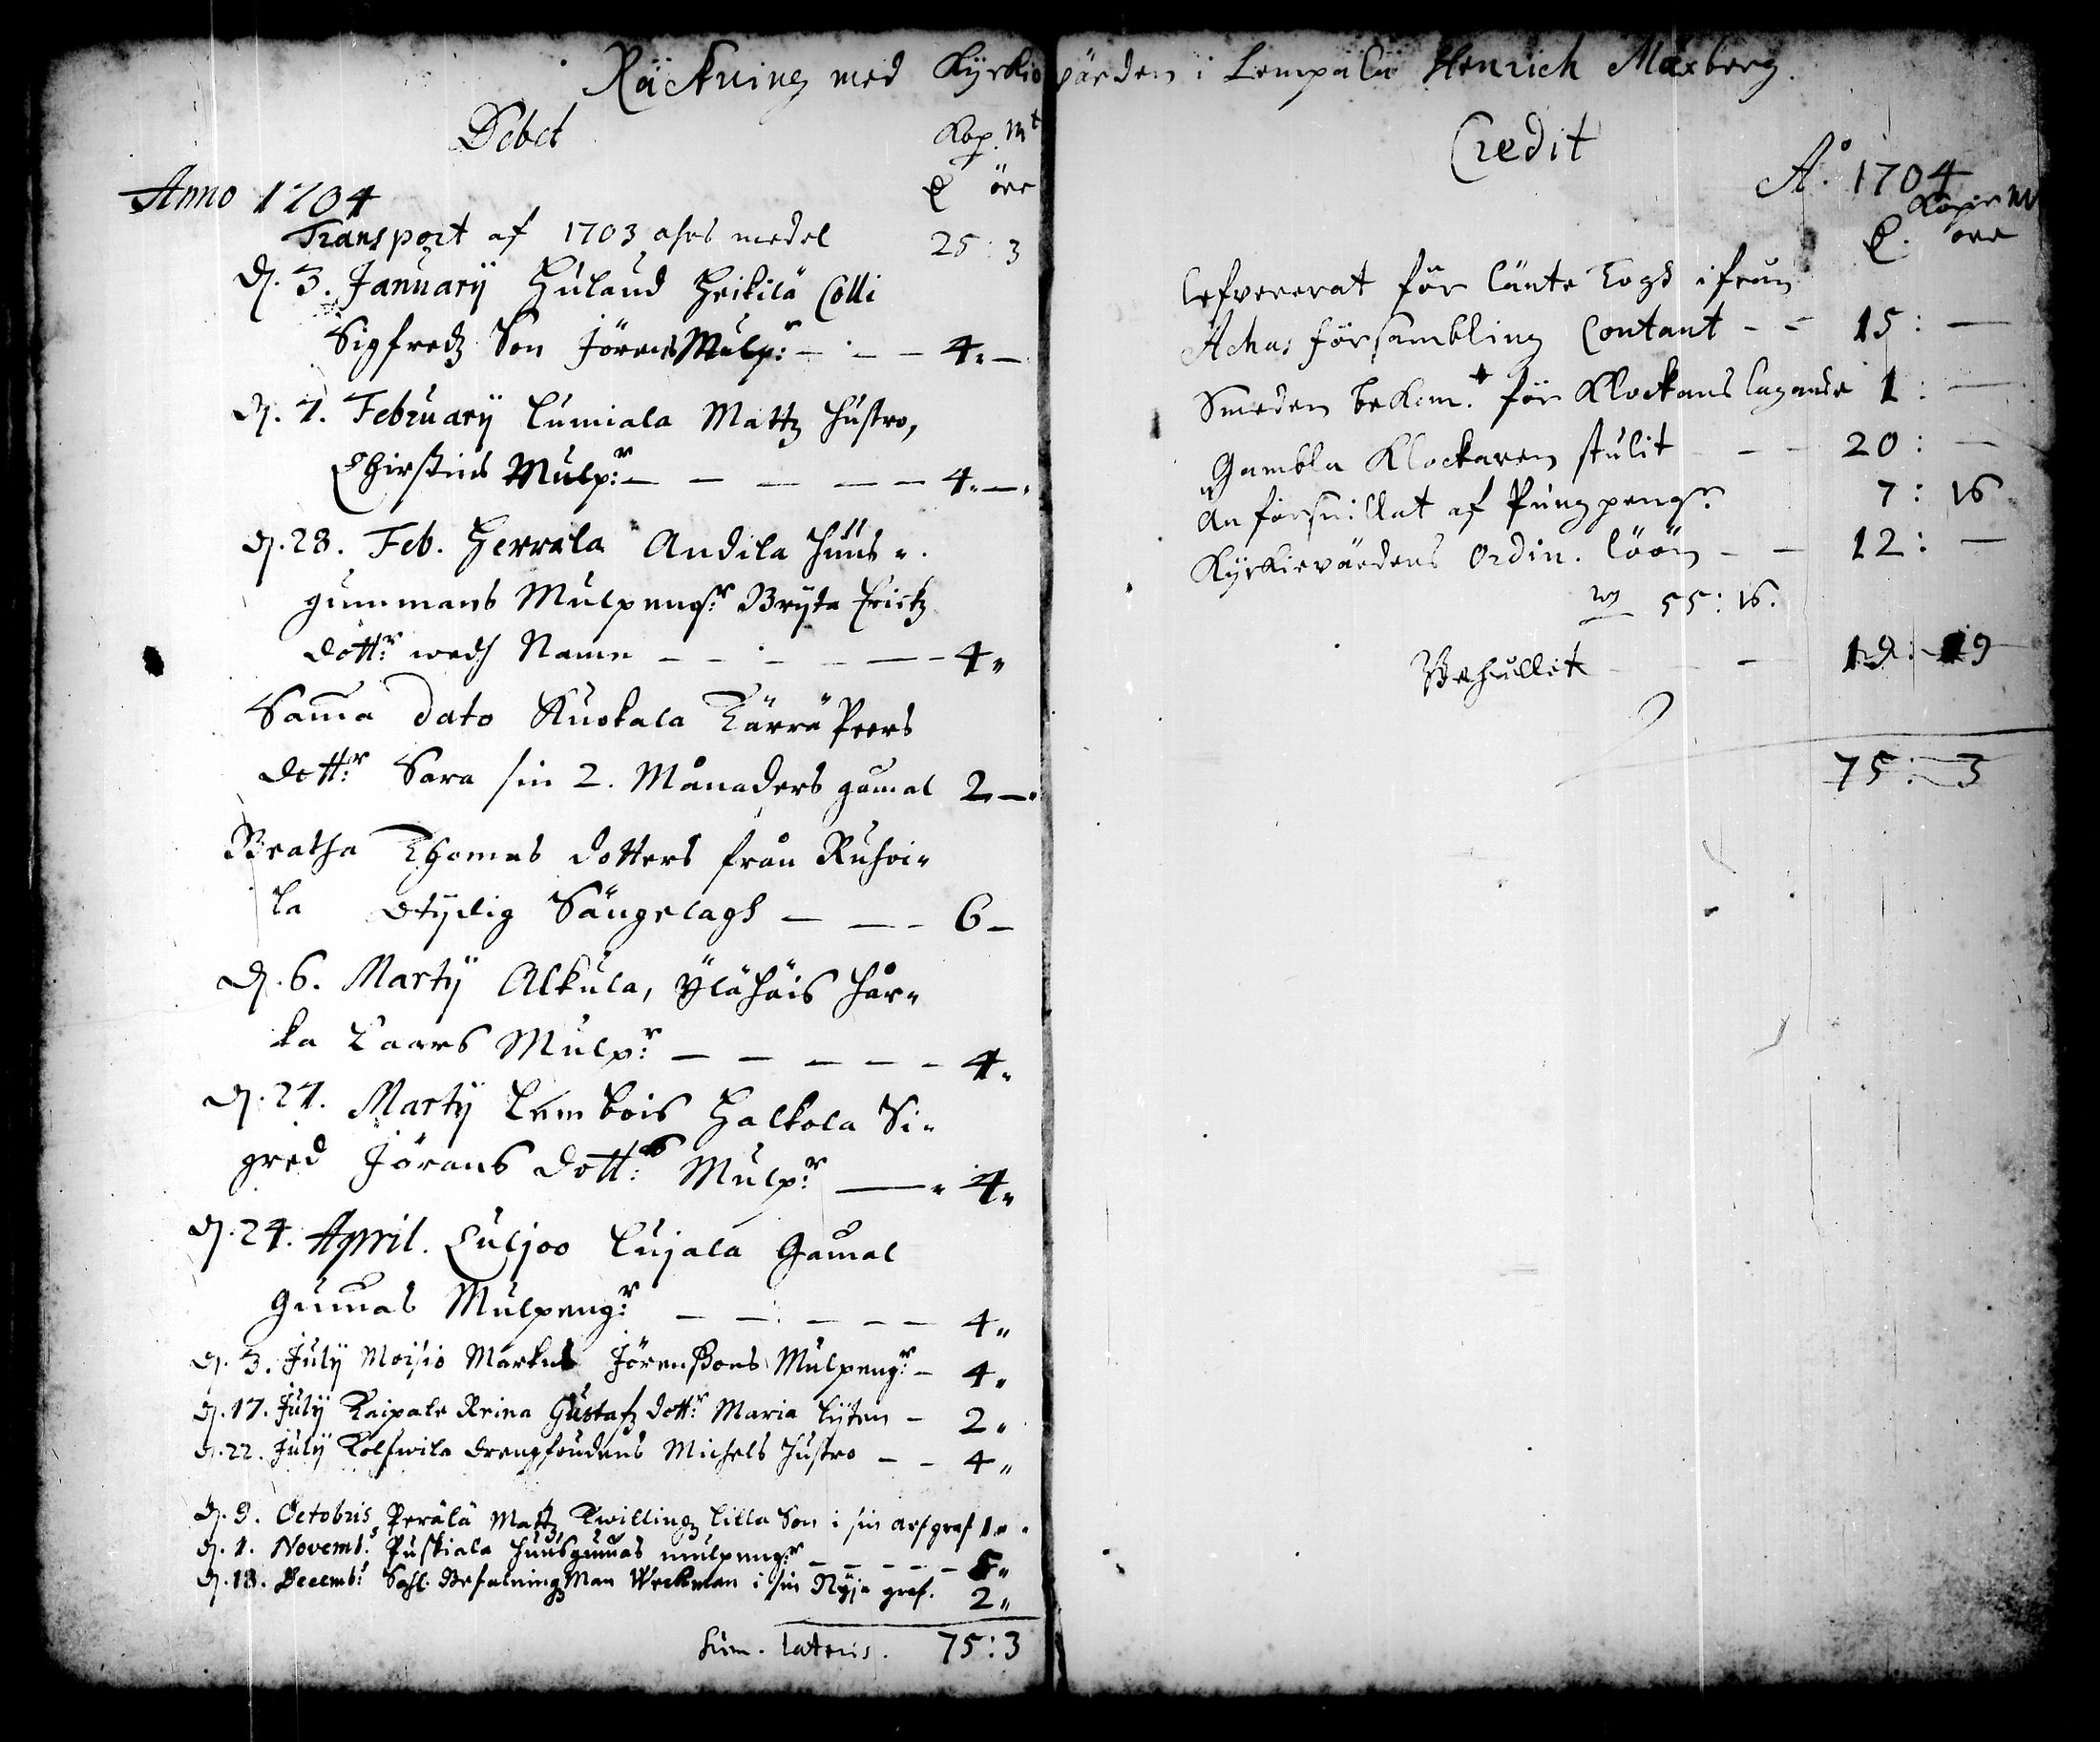 Räckning med Kyrkiovärden i Lempälä Henrich Maxberg.
Debet
Kop. Mt
Anno 1704
öre
Transport af 1703 ahrs medel 25:3
d. 3. Januarij Hulaud Heikilä Colli
Sigfredz Son Jörens Mulp:r — — — 4. —
d. 7. February Lumiala Mattz hustro,
Chirstins Mulp:r — — — — — 4. —
d. 28. Feb. Herrala Andila huus-
gummans Mulpeng:r Bryta Erichz
dott:r wedh Namn — — — — — 4"
Samma dato Kuokala Tärrä Peers
dott:r Sara sin 2. Månaders gamal 2 —
Breatha Thomas dotters från Ruhoi-
la Otydig Sängelagh — — — 6 —
d. 6. Martij Alkula, Ylähäis hår-
ka Laars Mulp:r — — — — — 4"
d. 27. Martij Lembois Halkola Si-
gred Jörans dott:s Mulp:r — 4"
d. 24. April. Culjoo Lujala Gamal
Gummas Mulpeng:r — — — — — 4"
d. 3. July Moisio Markus Jörenssons Mulpeng:r — 4"
d. 17. July Kaipale Reina Gustafz dott:r Maria lijten — 2"
d. 22. July Kolhwila drengfoudens Michels hustro — — 4"
d. 9. Octobris Perälä Mattz Twillingz lilla Son i sin arfgraf 1"
d. 1. Novemb: Puskiala huusgummas mulpeng:r — — — — 5"
d. 18. Decemb: Sahl. Befalningz Man Weckman i sin Nyja graf. 2"
Sum. lateris. 75:3
Credit
Ao. 1704
öre
Lefvererat för länte Togh ifrån
Achas försambling Contant — — 15: —
Smeden bekom.t för Klockans lagande 1: —
Gambla Klockaren stulit — — 20: —
An försnillat af Pungpeng:r 7: 16
Kyrkiovärdens Ordin. löön — — 12: —
55:16.
Behållit — — 19: 19
75: 3